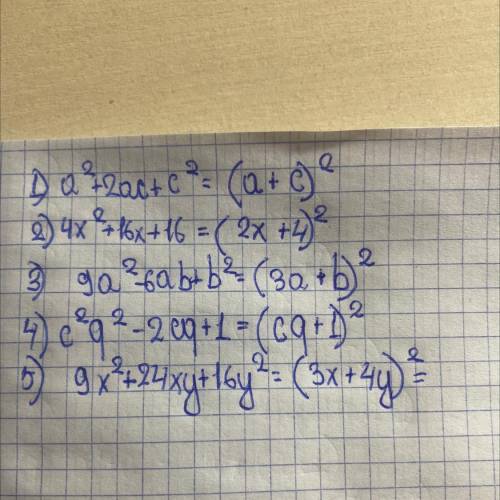 1) a²+2ac+c²=(a+c)²
2) 4x²+16x+16=(2x+4)²
3) 9a²-6ab+b²=(3a+b)²
4) c²q²-2cq+1=(cq+1)²
5) 9x²+24xy+16y²=(3x+4y)²=